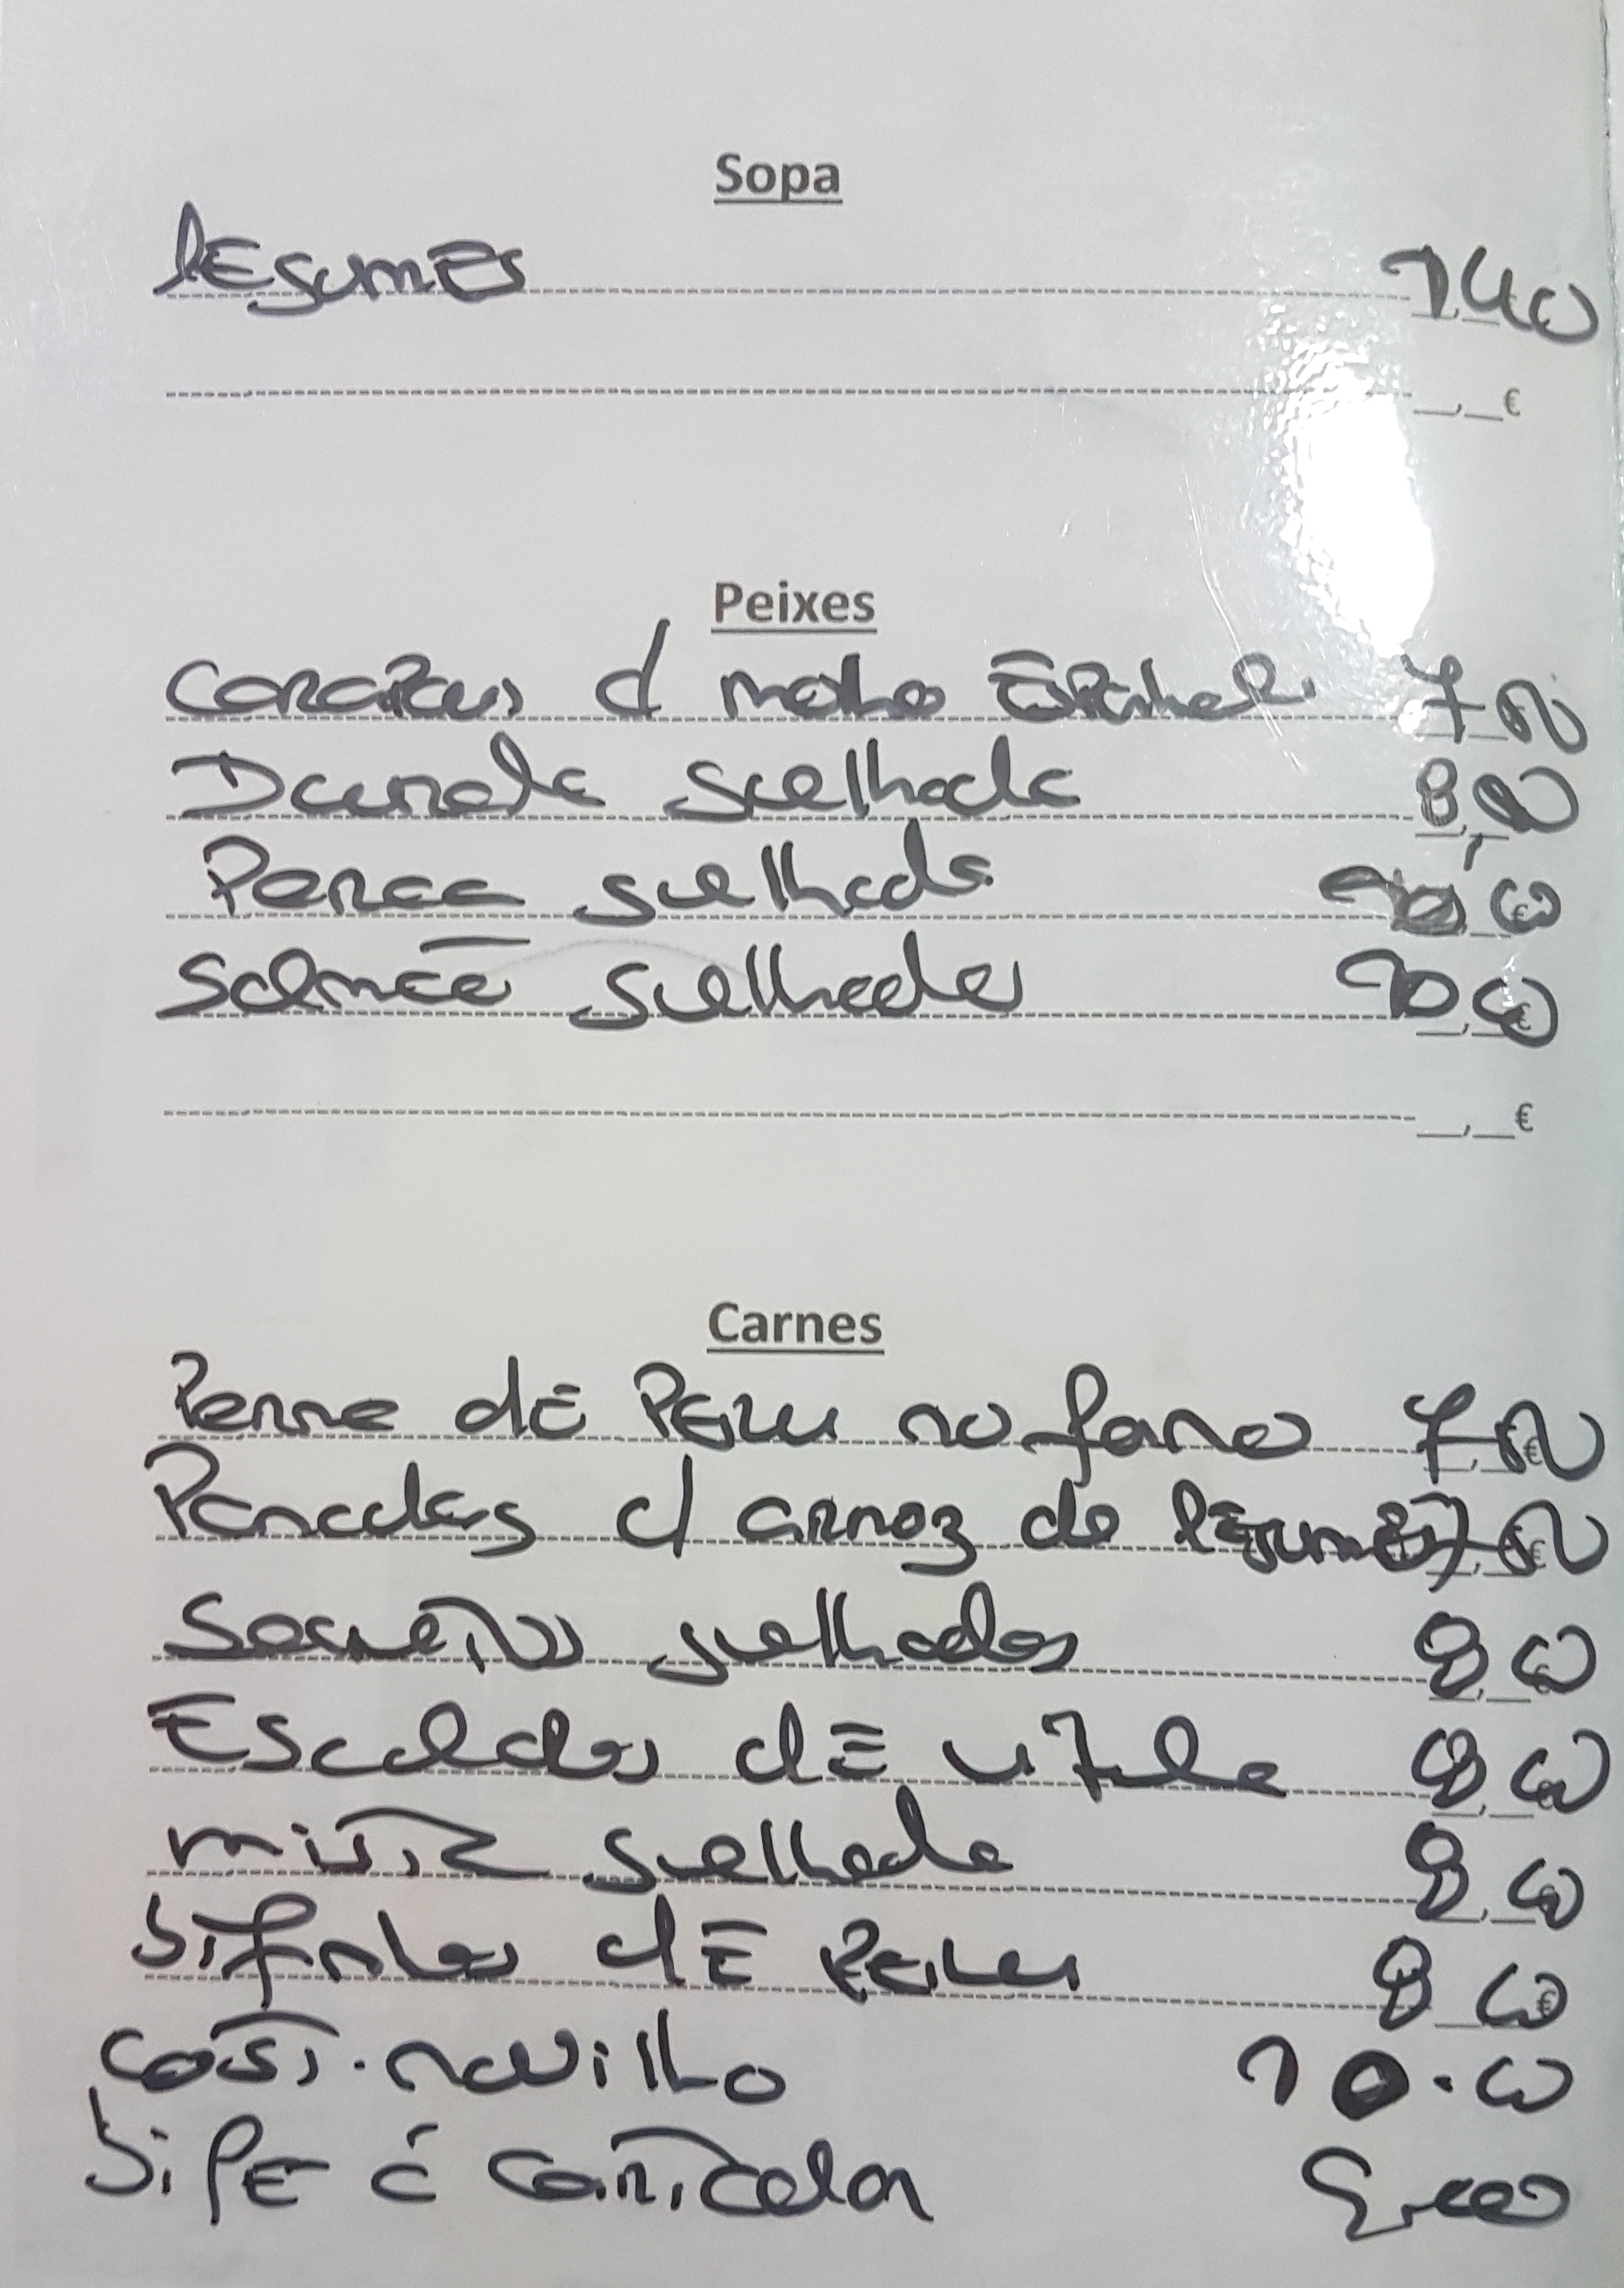 Sopa
legumes 1,40
__,__€
Peixes
carapaus c/ molho Espanhola 7,50
Dourada grelhada 8,50
Perca grelhada
Salmão grelhado 10,00
__,__€
Carnes
Perna dE PEru no forno 7,50
Panadas c/ arroz de legumes 7,50
Secretos grelhados 8,00
Escalopes dE vitela 8,00
mista grelhada 8,00
bifinhos dE PEru 8,00
cost. novilho 10.00
bife á cortador 9,00